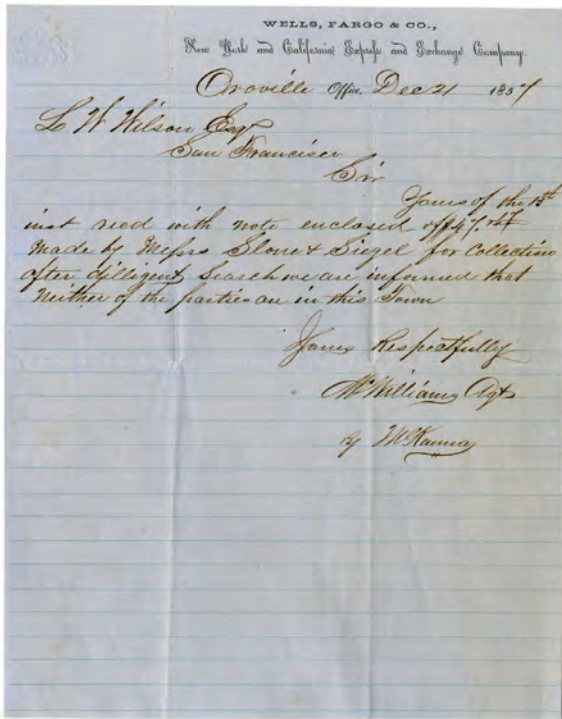 WELLS, FARGO & CO.,
New York and California Express and Exchange Company.
Oroville Office, Dec 21 1857
L W Wilson Esq
San Francisco
Sir
Yours of the 15th
inst recd with note enclosed of $47.
made by Messrs Slone & Siegel for collection
after dilligent search we are informed that
neither of the parties are in this Town
Yours Respectfully
McWilliams Agt
By McKanna